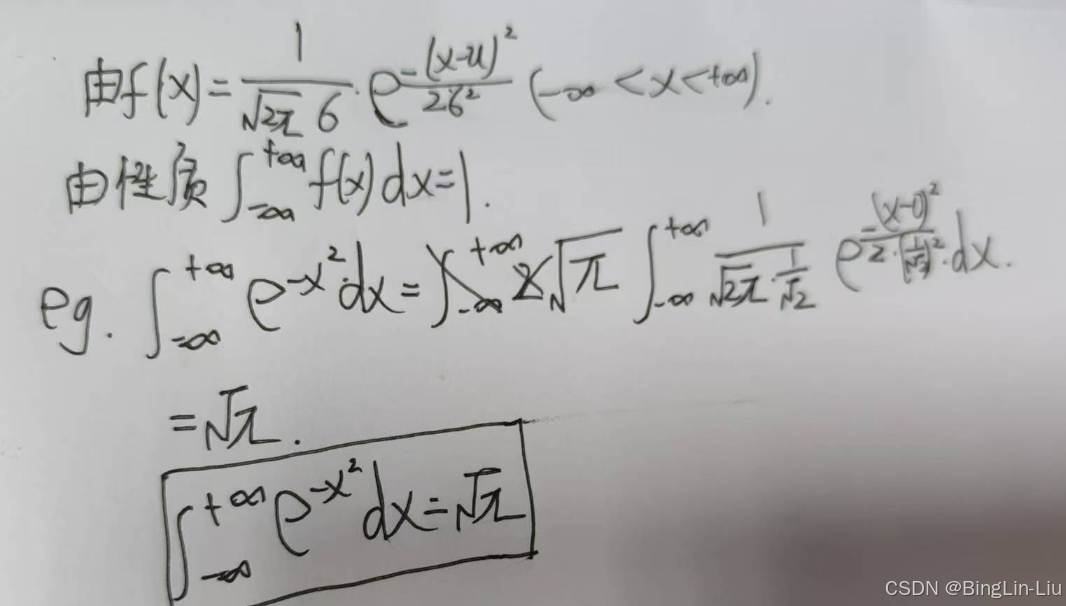 由f(x)=\frac{1}{\sqrt{2π}6}·e^{\frac{-(x-u)^2}{26^2}} (-∞<x<+∞).
由性质∫_{-∞}^{+∞}f(x)dx=1.
eg. ∫_{-∞}^{+∞}e^{-x^2}dx=√π∫_{-∞}^{+∞}\frac{1}{\sqrt{2π}·\frac{1}{\sqrt{2}}}e^{\frac{-(x-0)^2}{2·(\frac{1}{\sqrt{2}})^2}}·dx.
=√π.
∫_{-∞}^{+∞}e^{-x^2}dx=√π
CSDN @BingLin-Liu